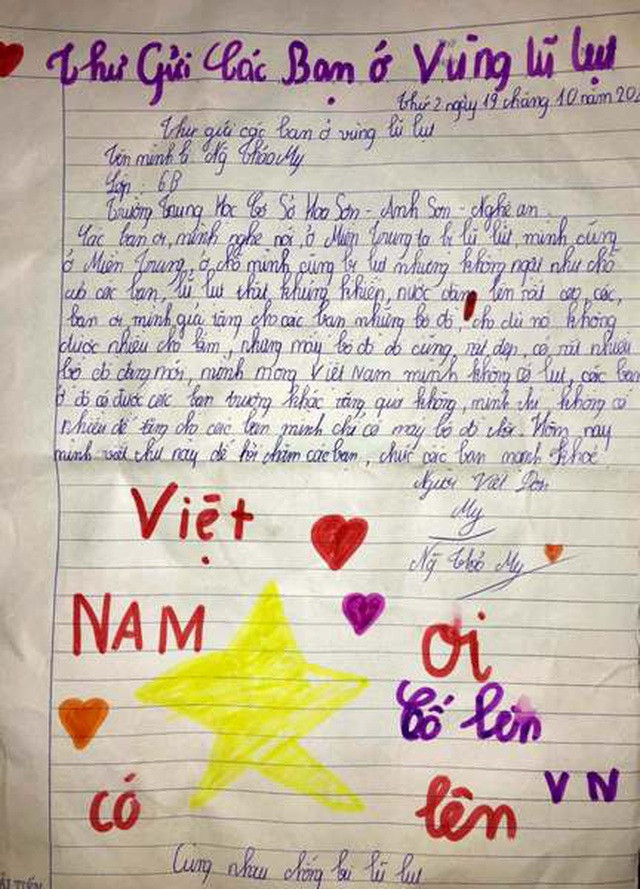 Thư Gửi Các Bạn ở Vùng lũ lụt
Thứ 2 ngày 19 tháng 10 năm 20
Thư gửi các bạn ở vùng lũ lụt
Tên mình là Ng Thảo My
Lớp : 6B
Trường Trung Học Cơ Sở Hoa Sơn - Anh Sơn - Nghệ an.
Các bạn ơi, mình nghe nói, ở Miền Trung ta bị lũ lụt, mình cũng
ở Miền Trung, ở chỗ mình cũng bị lụt nhưng không ngập như chỗ
các bạn, lũ lụt thật khủng khiếp, nước dâng lên rất cao, các,
bạn ơi mình gửi tặng cho các bạn những bộ đồ, cho dù nó không
được nhiều cho lắm, nhưng mấy bộ đồ đó cũng, rất đẹp, có rất nhiều
bộ đồ đang mới, mình mong Việt Nam mình không có lụt, các bạn
ở đó có được các bạn trường khác tặng quà không, mình chỉ không có
nhiều để tặng cho các bạn mình chỉ có mấy bộ đồ thôi. Hôm nay
mình viết thư này để hỏi thăm các bạn, chúc các bạn mạnh khoẻ
Người Viết Đơn
My
Ng Thảo My
Việt
NAM ơi
Cố lên
VN
có lên
Cùng nhau chống lũ lụt